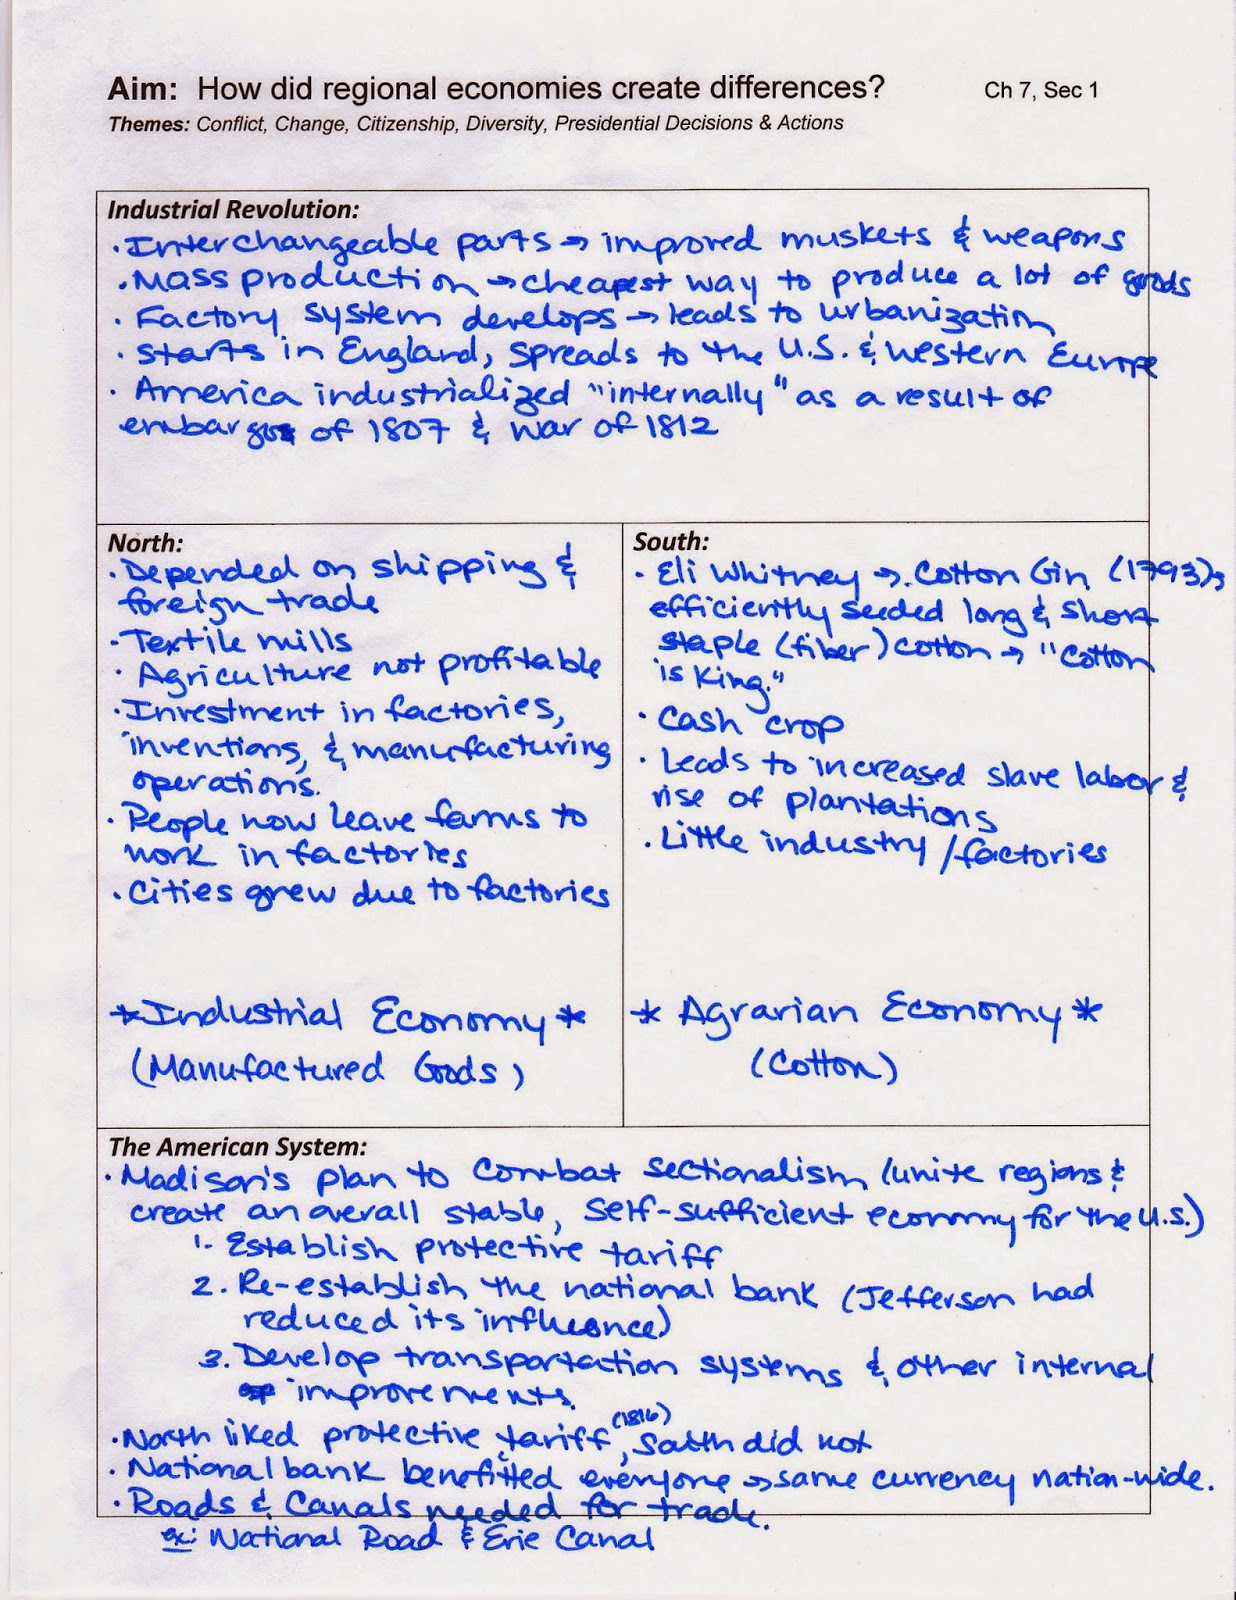 Aim: How did regional economies create differences? Ch 7, Sec 1
Themes: Conflict, Change, Citizenship, Diversity, Presidential Decisions & Actions
Industrial Revolution:
· Interchangeable parts → improved muskets & weapons
· Mass production → cheapest way to produce a lot of goods
· Factory system develops → leads to urbanization
· Starts in England, spreads to the U.S. & Western Europe
· America industrialized "internally" as a result of
embargo of 1807 & War of 1812
North:
· Depended on shipping &
foreign trade
· Textile mills
· Agriculture not profitable
· Investment in factories,
inventions, & manufacturing
operations.
· People now leave farms to
work in factories
· Cities grew due to factories
* Industrial Economy *
(Manufactured Goods)
South:
· Eli Whitney → Cotton Gin (1793),
efficiently seeded long & short
staple (fiber) cotton → "Cotton
is King."
· Cash crop
· Leads to increased slave labor &
rise of plantations
· Little industry/factories
* Agrarian Economy *
(Cotton)
The American System:
· Madison's plan to combat sectionalism (unite regions &
create an overall stable, self-sufficient economy for the U.S.)
1. Establish protective tariff
2. Re-establish the national bank (Jefferson had
reduced its influence)
3. Develop transportation systems & other internal
improvements.
· North liked protective tariff (1816), South did not
· National bank benefitted everyone → same currency nation-wide.
· Roads & Canals needed for trade.
ex: National Road & Erie Canal